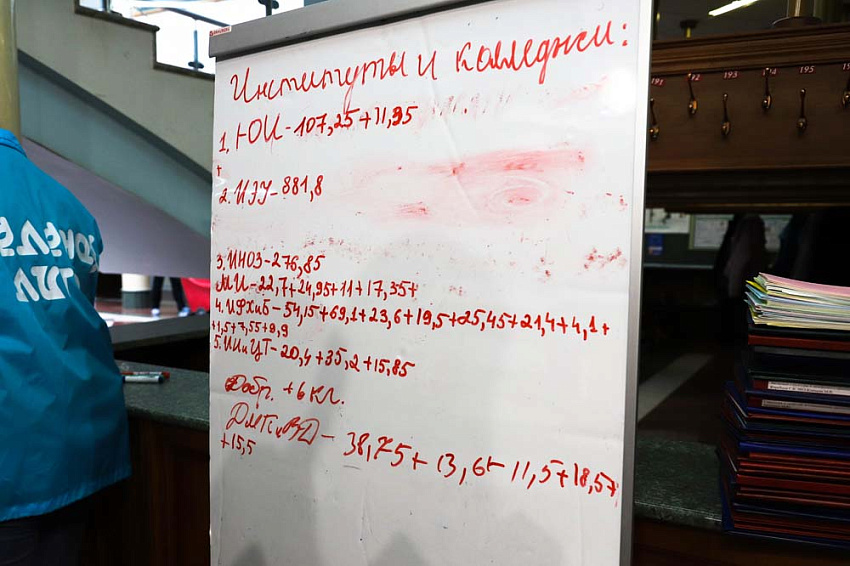 Институты и колледжи:
1. ЮИ - 107,25 + 11,95
+
2. ИЭУ - 881,8
3. ИНОЗ - 276,85
МИ - 22,7 + 24,95 + 11 + 17,35 +
4. ИФХиБ - 54,15 + 69,1 + 23,6 + 19,5 + 25,45 + 21,4 + 4,1 +
+ 1,5 + 7,55 + 9,9
5. ИИиЦТ - 20,4 + 35,2 + 15,85
Добр. + 6 кл.
- 38,75 + 13,6 + 11,5 + 18,5 +
+ 15,5
192
193
194
195